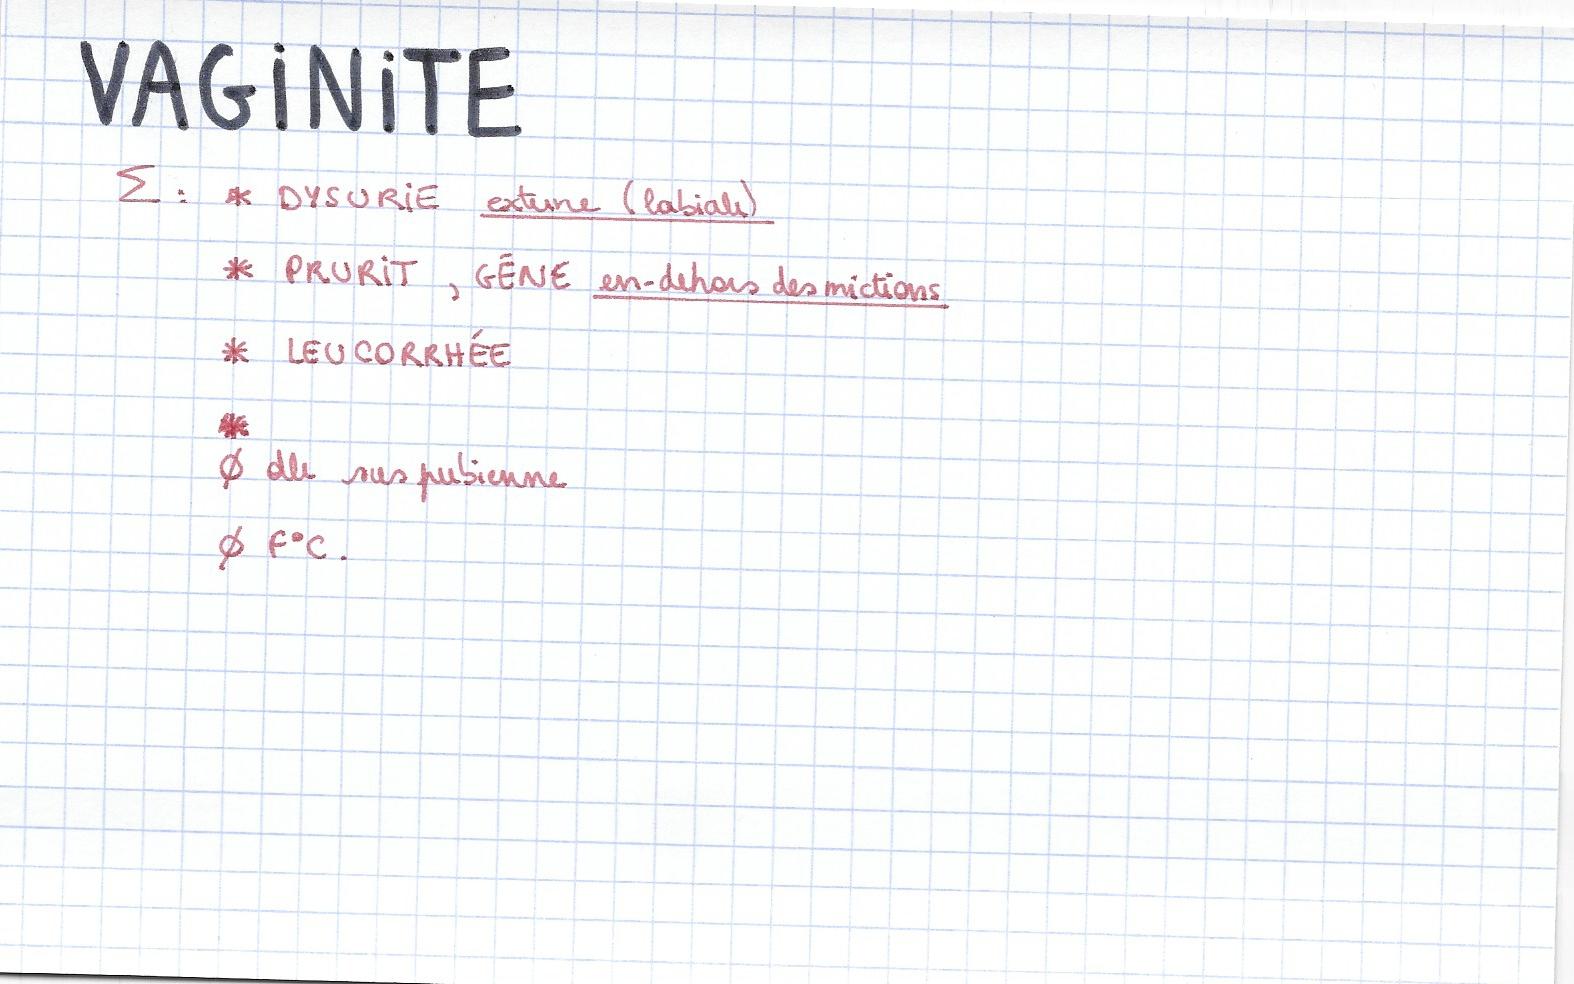 VAGINITE
Σ : * DYSURIE externe (labiale)
* PRURIT , GÊNE en-dehors des mictions
* LEUCORRHÉE
*
∅ dlr sus pubienne
∅ F°C.